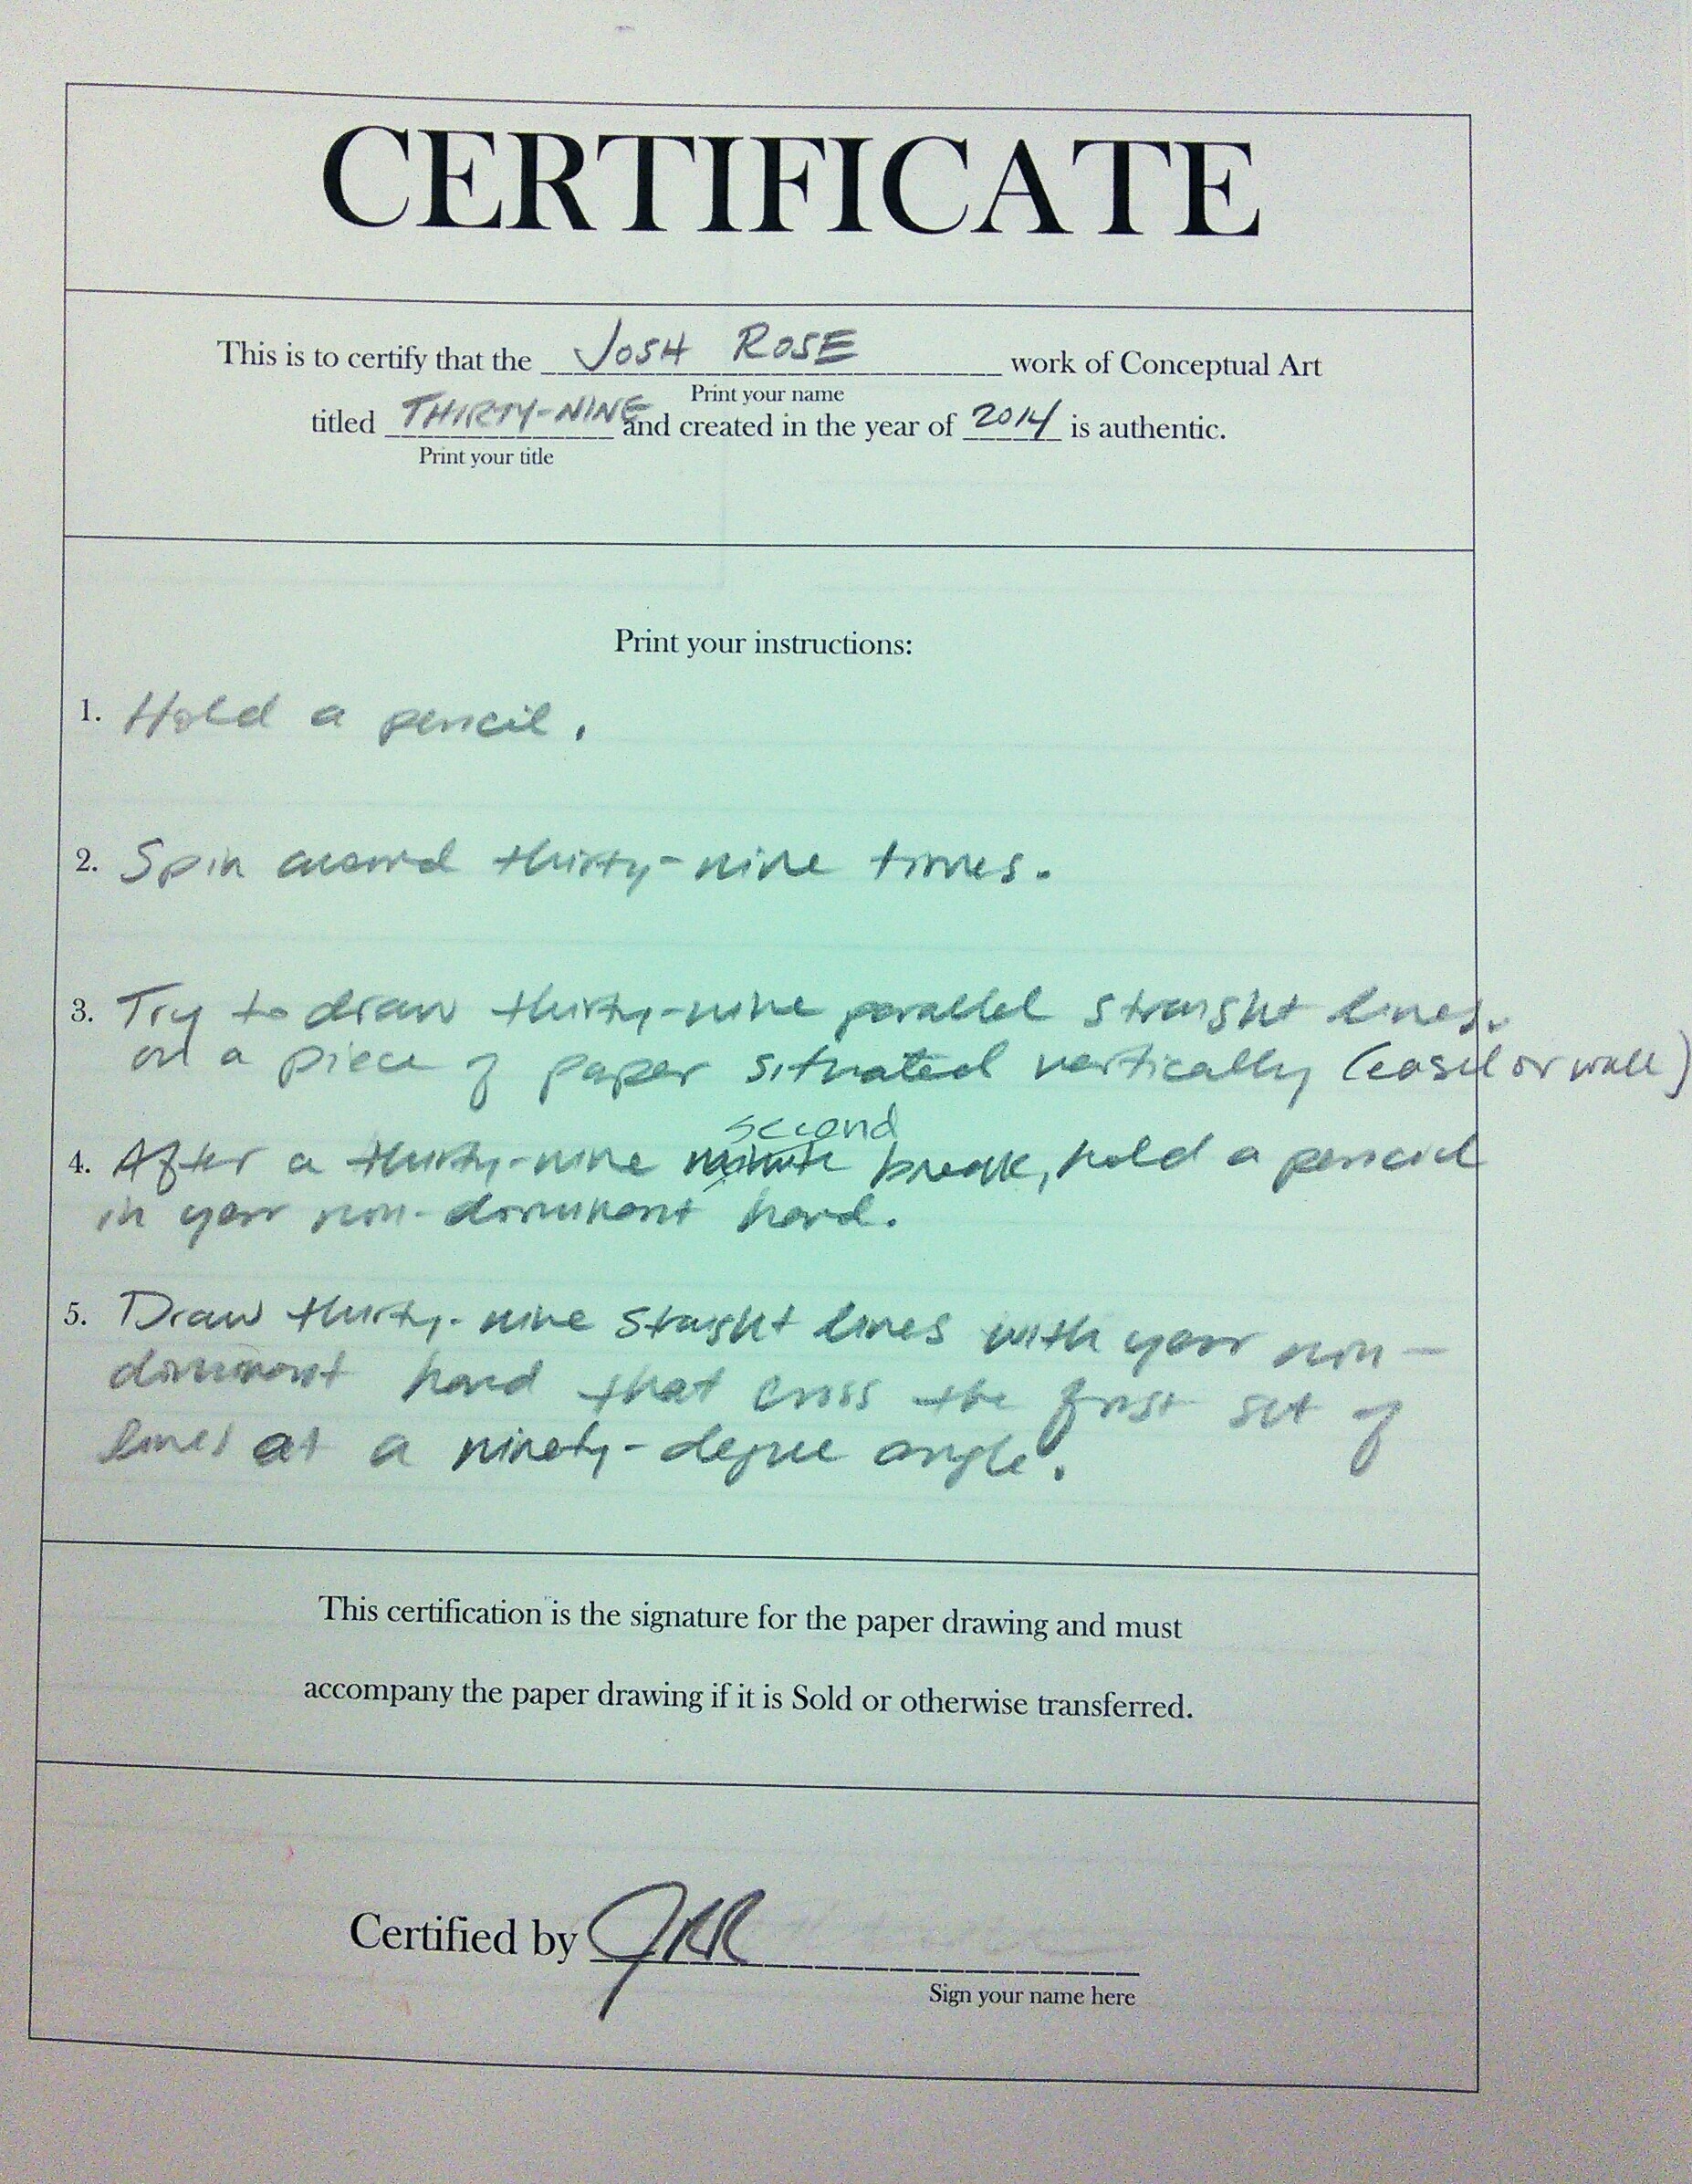 CERTIFICATE
This is to certify that the JOSH ROSE work of Conceptual Art
Print your name
titled THIRTY-NINE and created in the year of 2014 is authentic.
Print your title
Print your instructions:
1. Hold a pencil.
2. Spin around thirty-nine times.
3. Try to draw thirty-nine parallel straight lines.
on a piece of paper situated vertically (easel or wall)
second
4. After a thirty-nine minute break, hold a pencil
in your non-dominant hand.
5. Draw thirty-nine staight lines with your non-
dominant hand that cross the first set of
lines at a ninety-degree angle.
This certification is the signature for the paper drawing and must
accompany the paper drawing if it is Sold or otherwise transferred.
Certified by JRR
Sign your name here